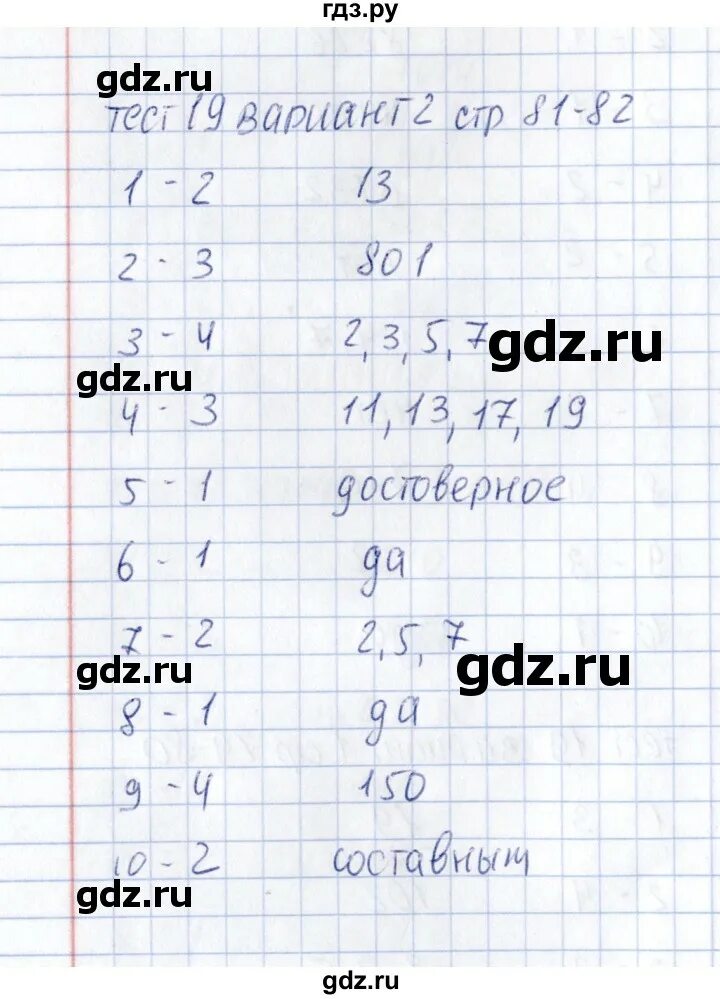 гдз.ру
gdz.ru
тест 19 вариант 2 стр 81-82
1 - 2 13
2 - 3 801
3 - 4 2, 3, 5, 7 gdz.ru
gdz.ru
4 - 3 11, 13, 17, 19
5 - 1 достоверное
6 - 1 да
7 - 2 2, 5, 7
gdz.ru gdz.ru
8 - 1 да
9 - 4 150
10 - 2 составным
gdz.ru
gdz.ru